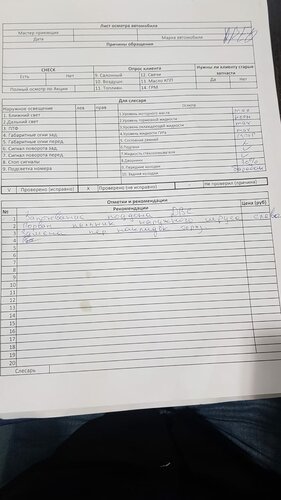 Лист осмотра автомобиля
Мастер-приемщик
Дата
Марка автомобиля
Причины обращения
CHECK
Опрос клиента
Нужны ли клиенту старые запчасти
Есть
Нет
9. Салонный
12. Свечи
Да
Нет
10. Воздушн
13. Масло КПП
Полный осмотр по Акции
11. Топливн
14. ГРМ
Для слесаря
Наружное освещение
лев
прав
Осмотр
1. Ближний свет
1.Уровень моторного масла
2.Дальний свет
2.Уровень тормозной жидкости
3. ПТФ
3.Уровень охлаждающей жидкости
max
4. Габаритные огни зад.
4.Уровень жидкости ГУРа
5. Габаритные огни перед.
5.Состояние ремней
6. Сигнал поворота зад.
6.Подушка
7. Сигнал поворота перед
7.Жидкость стеклоомывателя
8. Стоп сигналы
9. Подсветка номера
9. Передние колодки
10. Задние колодки
V
Проверено (исправно)
X
Проверено (неисправно)
Не проверил (причина)
Отметки и рекомендации
№
Рекомендации
Цена (руб)
1
Запотевание поддона ДВС
2
Порван пыльник наружного шруса слева
3
Замена пер накладок
4
5
6
7
8
9
10
11
12
13
14
15
16
17
18
19
20
Слесарь